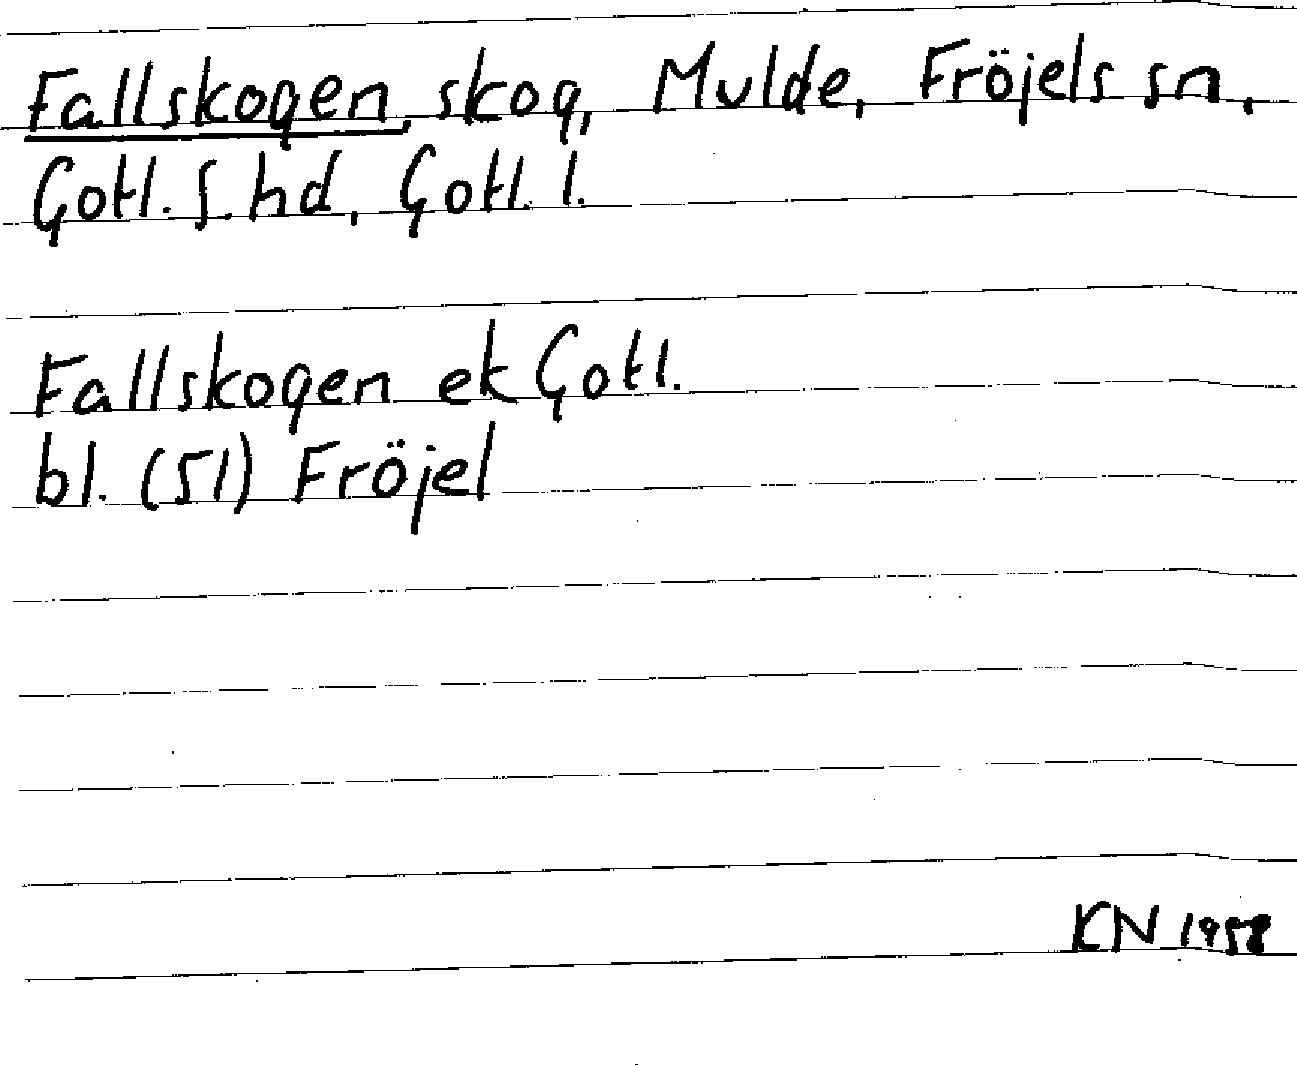 Fallskogen, skog, Mulde, Fröjels sn,
Gotl. S. hd, Gotl. l.
Fallskogen ek Gotl.
bl. (51) Fröjel
KN 1958